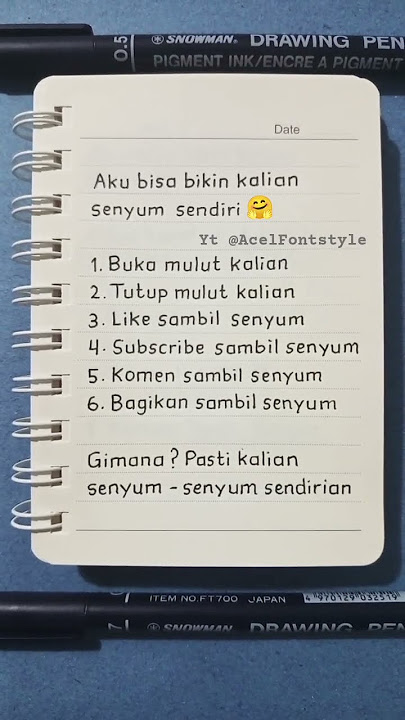 0.5 SNOWMAN® DRAWING PEN
PIGMENT INK/ENCRE A PIGMENT
Date
Aku bisa bikin kalian
senyum sendiri 🤗
Yt @AcelFontstyle
1. Buka mulut kalian
2. Tutup mulut kalian
3. Like sambil senyum
4. Subscribe sambil senyum
5. Komen sambil senyum
6. Bagikan sambil senyum
Gimana? Pasti kalian
senyum - senyum sendirian
ITEM NO.FT700 JAPAN
4970129032519
SNOWMAN® DRAWING PEN